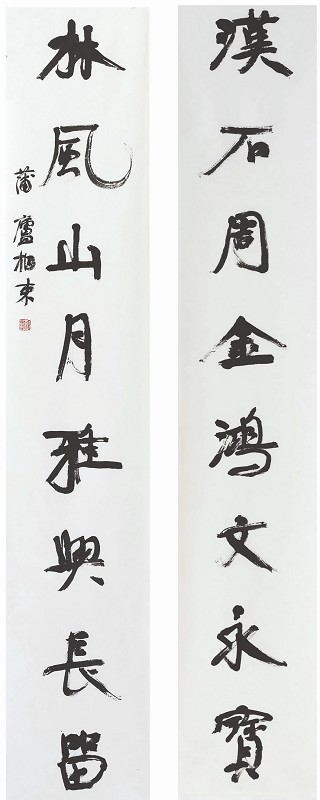 漢石周金鴻文永寶
林風山月雅興長留
蒲廬東